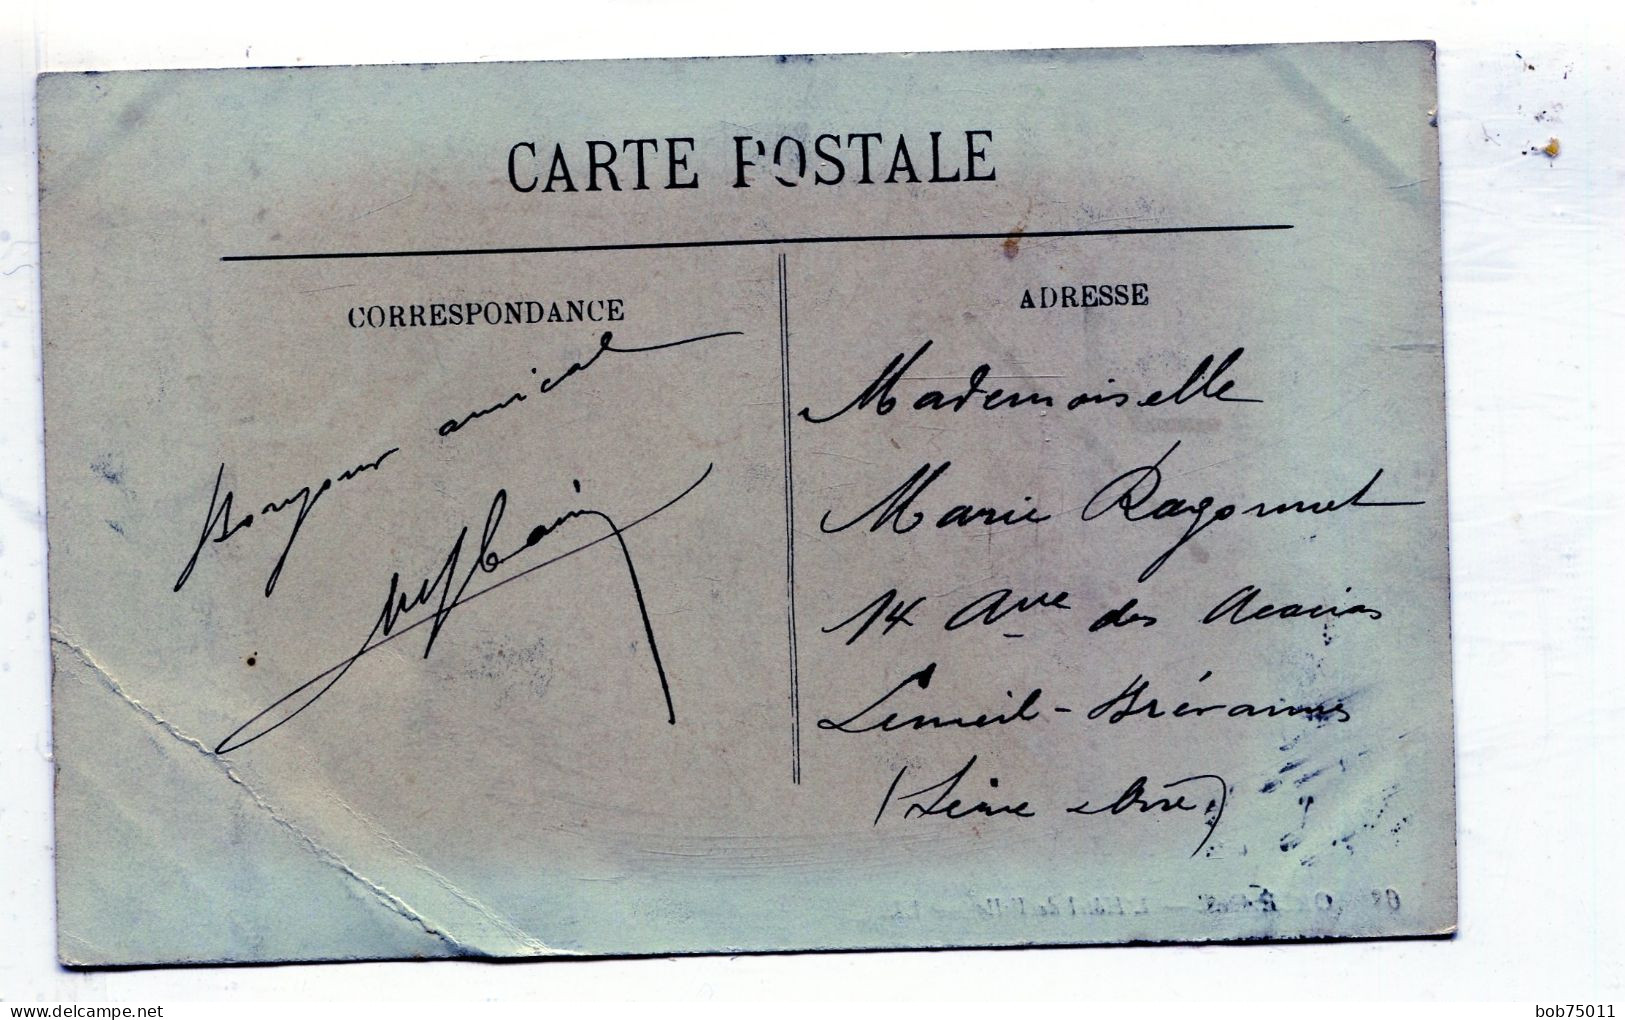 CARTE POSTALE
CORRESPONDANCE
Bonjour amical
ADRESSE
Mademoiselle
Marie Ragonnet
14 Aue des Acacias
Limeil-Brévannes
(Seine et Oise)
bob75011